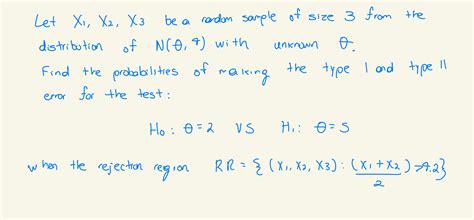 Let X₁, X₂, X₃ be a random sample of size 3 from the
distribution of N(θ, 4) with unknown θ.
Find the probabilities of making the type I and type II
error for the test:
H₀: θ=2 VS H₁: θ=5
when the rejection region RR = { (X₁, X₂, X₃) : (X₁ + X₂)/2 > 4.2 }